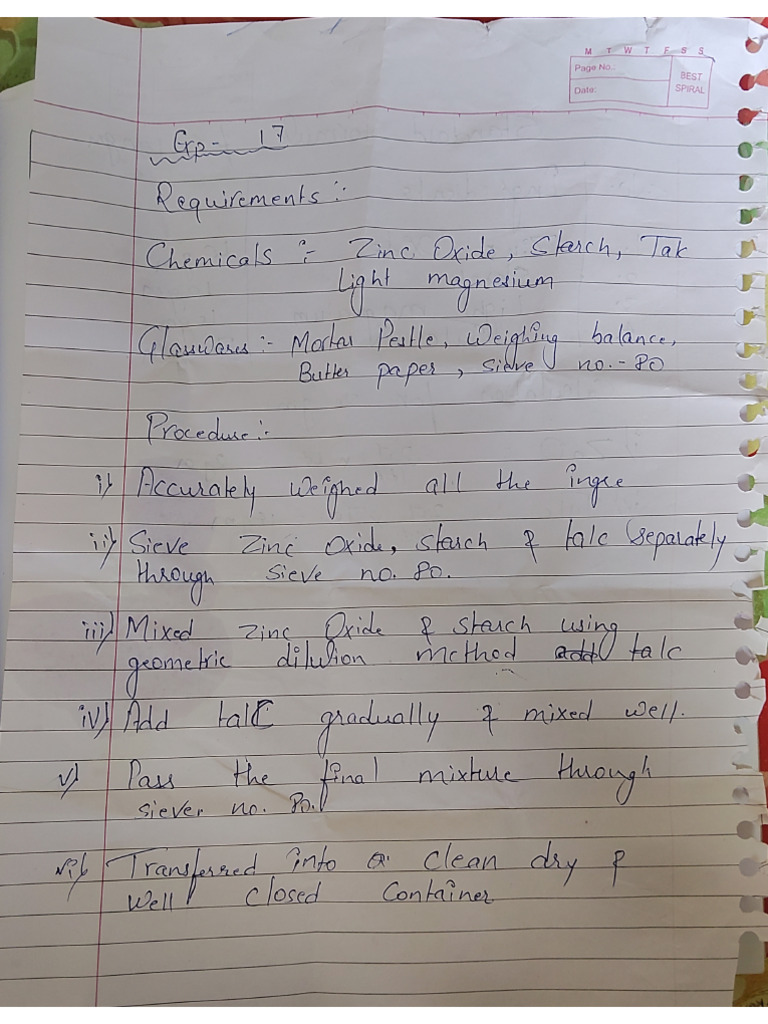 M T W T F S S
Page No.:
Date:
BEST
SPIRAL
Grp- 17
Requirements :-
Chemicals :- Zinc Oxide, Starch, Talc
Light magnesium
Glasswares :- Mortar Pestle, Weighing balance,
Butter paper, sieve no.-80
Procedure :-
i) Accurately weighed all the ingre
ii) Sieve Zinc Oxide, starch & talc separately
through sieve no. 80.
iii) Mixed zinc Oxide & starch using
geometric dilution method talc
iv) Add talc gradually & mixed well.
v) Pass the final mixture through
siever no. 80.
vi) Transferred into a clean dry &
well closed container